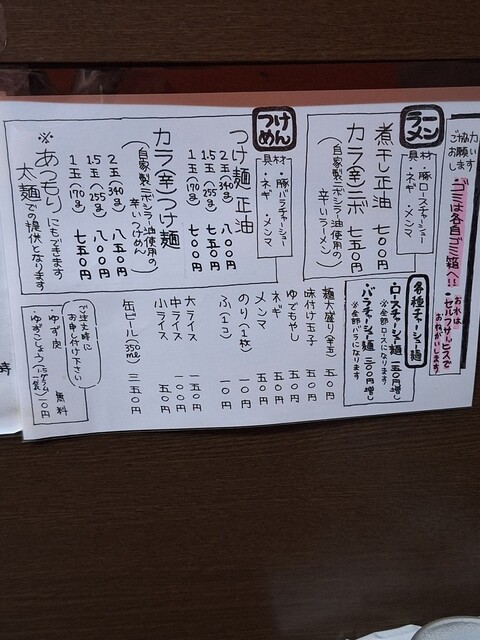 ご協力
お願い
します
「ゴミは各自ゴミ箱へ!!
おれは
セルフサービスで
おねがいします
ラーメン
具材
・豚ロースチャーシュー
・ネギ ・メンマ
煮干し正油 七〇〇円
カラ(辛)ニボ 七五〇円
(自家製ニボシラー油使用の
辛いラーメン)
つけめん
具材
・豚バラチャーシュー
・ネギ ・メンマ
つけ麺 正油
2玉(340g) 八〇〇円
1.5玉(255g) 七五〇円
1玉(170g) 七〇〇円
カラ(辛)つけ麺
(自家製ニボシラー油使用の
辛いつけめん)
2玉(340g) 八五〇円
1.5玉(255g) 八〇〇円
1玉(170g) 七五〇円
※あつもりにもできます
太麺での提供となります
各種チャーシュー麺
・ロースチャーシュー麺 一五〇円増し
※全部ロースになります
・バラチャーシュー麺 三〇〇円増し
※全部バラになります
麺大盛り(半玉) 五〇円
味付け玉子 五〇円
ゆでもやし 五〇円
ネギ 五〇円
メンマ 五〇円
のり(1枚) 一〇円
ふ(1コ) 一〇円
大ライス 一五〇円
中ライス 一〇〇円
小ライス 五〇円
缶ビール(350ml) 三五〇円
ご注文時に
お申し付け下さい
・ゆず皮 無料
・ゆずこしょう 一〇円